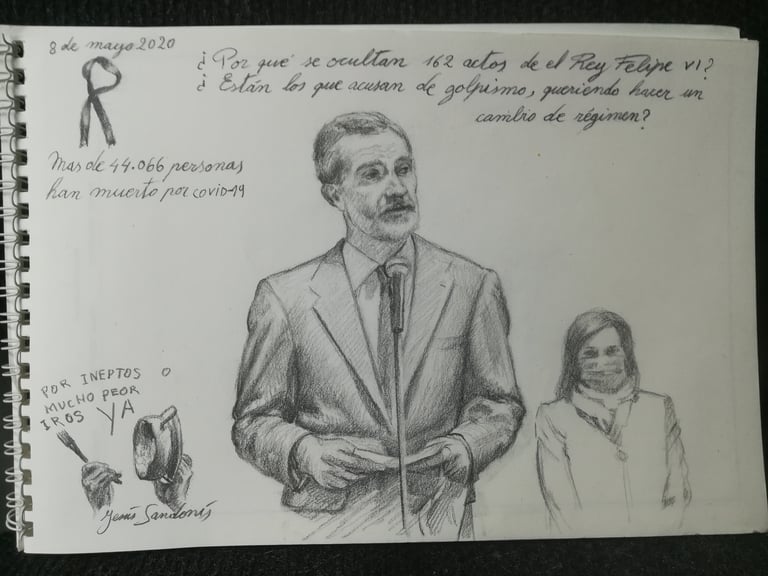 8 de mayo 2020
¿Por qué se ocultan 162 actos de el Rey Felipe VI?
¿Están los que acusan de golpismo, queriendo hacer un
cambio de régimen?
Mas de 44.066 personas
han muerto por covid-19
POR INEPTOS O
MUCHO PEOR
IROS YA
Jesús Sandonís